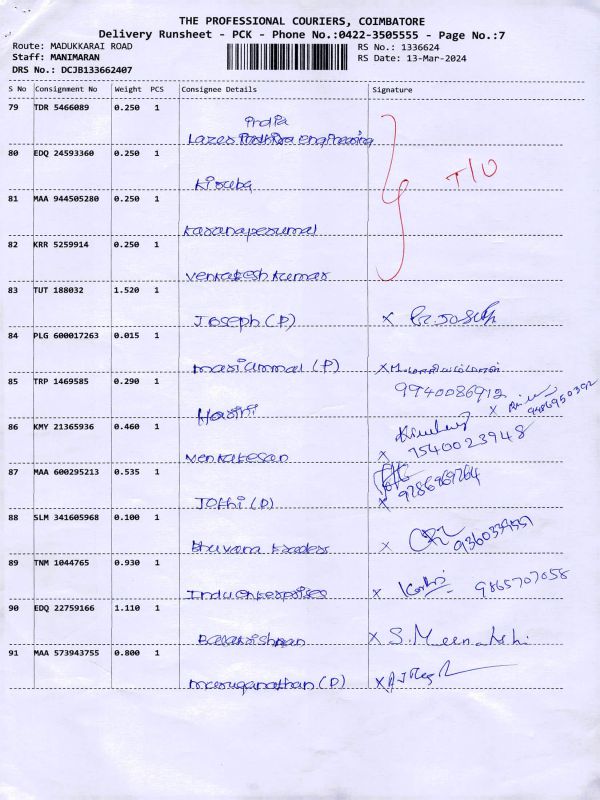 THE PROFESSIONAL COURIERS, COIMBATORE
Delivery Runsheet - PCK - Phone No.:0422-3505555 - Page No.:7
Route: MADUKKARAI ROAD
RS No.: 1336624
Staff: MANIMARAN
RS Date: 13-Mar-2024
DRS No.: DCJB133662407
S No Consignment No Weight PCS Consignee Details Signature
79 TDR 5466089 0.250 1
India
Lazer engineering
80 EDQ 24593360 0.250 1
T/O
Kiruba
81 MAA 944505280 0.250 1
Karanaperumal
82 KRR 5259914 0.250 1
Venkatesh Kumar
83 TUT 188032 1.520 1
Joseph (P) x
84 PLG 600017263 0.015 1
Mariammal (P) x
85 TRP 1469585 0.290 1 9940086912
Harini x
86 KMY 21365936 0.460 1
Venkatesan x 7540023948
87 MAA 600295213 0.535 1
Jothi (P) x
88 SLM 341605968 0.100 1
Bhuvana Traders x
89 TNM 1044765 0.930 1
Indu Enterprises x 9865707058
90 EDQ 22759166 1.110 1
Balakrishnan x S. Meenakshi
91 MAA 573943755 0.800 1
Muruganathan (P) x